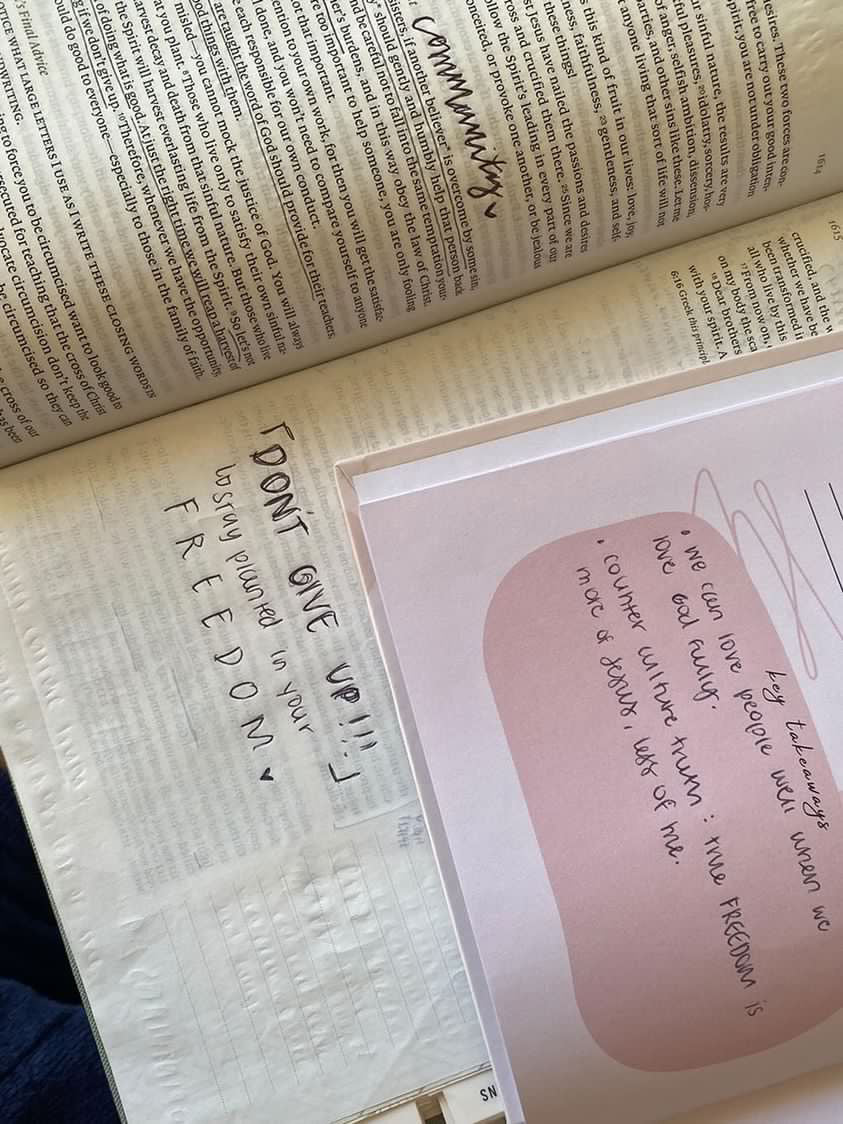 1614
esires. These two forces are con-
free to carry out your good inten-
spirit, you are not under obligation
sinful nature, the results are very
ful pleasures, 20 idolatry, sorcery, hos-
of anger, selfish ambition, dissension,
parties, and other sins like these. Let me
t anyone living that sort of life will not
this kind of fruit in our lives: love, joy,
ness, faithfulness, 23 gentleness, and self-
these things!
st Jesus have nailed the passions and desires
ross and crucified them there. 25 Since we are
ollow the Spirit's leading in every part of our
onceited, or provoke one another, or be jealous
community ♥
sisters, if another believer* is overcome by some sin,
y* should gently and humbly help that person back
nd be careful not to fall into the same temptation your-
her's burdens, and in this way obey the law of Christ.
re too important to help someone, you are only fooling
ot that important.
ention to your own work, for then you will get the satisfac-
l done, and you won't need to compare yourself to anyone
e each responsible for our own conduct.
are taught the word of God should provide for their teachers,
ood things with them.
misled—you cannot mock the justice of God. You will always
at you plant. 8 Those who live only to satisfy their own sinful na-
arvest decay and death from that sinful nature. But those who live
the Spirit will harvest everlasting life from the Spirit. 9 So let's not
of doing what is good. At just the right time we will reap a harvest of
g if we don't give up. 10 Therefore, whenever we have the opportunity,
ould do good to everyone—especially to those in the family of faith.
's Final Advice
ICE WHAT LARGE LETTERS I USE AS I WRITE THESE CLOSING WORDS IN
WRITING.
ing to force you to be circumcised want to look good to
secured for teaching that the cross of Christ
vocate circumcision don't keep the
be circumcised so they can
e cross of our
has been
1615
crucified, and the w
whether we have be
been transformed i
all who live by this
17 From now on,
on my body the sca
18 Dear brothers
with your spirit. A
6:16 Greek this principl
DON'T GIVE UP!!!
to stay planted in your
FREEDOM ♥
key takeaways
• we can love people well when we
love God fully.
• counter culture truth: true FREEDOM is
more of Jesus, less of me.
NS